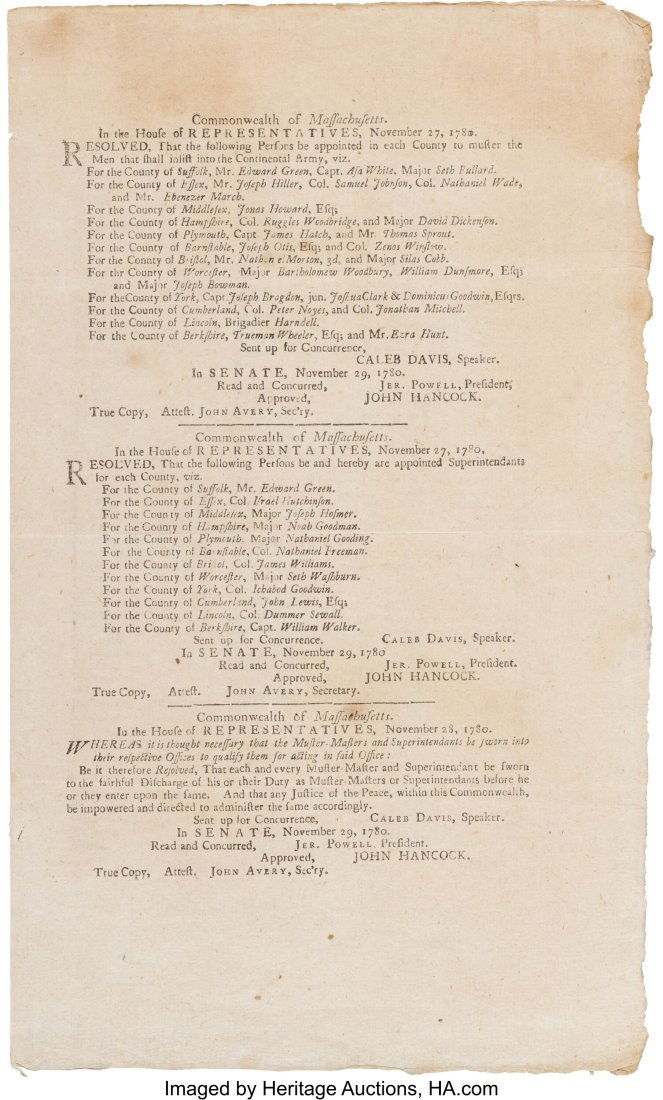 Commonwealth of Maſſachuſetts.
In the Houſe of REPRESENTATIVES, November 27, 1780.
RESOLVED, That the following Perſons be appointed in each County to muſter the
Men that ſhall inliſt into the Continental Army, viz.
For the County of Suffolk, Mr. Edward Green, Capt. Aſa White, Major Seth Bullard.
For the County of Eſſex, Mr. Joſeph Hiller, Col. Samuel Johnſon, Col. Nathaniel Wade,
and Mr. Ebenezer March.
For the County of Middleſex, Jonas Howard, Eſq;
For the County of Hampſhire, Col. Ruggles Woodbridge, and Major David Dickenſon.
For the County of Plymouth, Capt. James Hatch, and Mr. Thomas Sprout.
For the County of Barnſtable, Joſeph Otis, Eſq; and Col. Zenos Winſlow.
For the County of Briſtol, Mr. Nathaniel Morton, 3d, and Major Silas Cobb.
For the County of Worceſter, Major Bartholomew Woodbury, William Dunſmore, Eſq;
and Major Joſeph Bowman.
For the County of York, Capt. Joſeph Bragdon, jun. Joſhua Clark & Dominicus Goodwin, Eſqrs.
For the County of Cumberland, Col. Peter Noyes, and Col. Jonathan Mitchell.
For the County of Lincoln, Brigadier Harndell.
For the County of Berkſhire, Trueman Wheeler, Eſq; and Mr. Ezra Hunt.
Sent up for Concurrence,
CALEB DAVIS, Speaker.
In SENATE, November 29, 1780.
Read and Concurred, JER. POWELL, Preſident,
Approved, JOHN HANCOCK.
True Copy, Atteſt. JOHN AVERY, Sec'ry.
Commonwealth of Maſſachuſetts.
In the Houſe of REPRESENTATIVES, November 27, 1780.
RESOLVED, That the following Perſons be and hereby are appointed Superintendants
for each County, viz.
For the County of Suffolk, Mr. Edward Green.
For the County of Eſſex, Col. Iſrael Hutchinſon.
For the County of Middleſex, Major Joſeph Hoſmer.
For the County of Hampſhire, Major Noah Goodman.
For the County of Plymouth, Major Nathaniel Gooding.
For the County of Barnſtable, Col. Nathaniel Freeman.
For the County of Briſtol, Col. James Williams.
For the County of Worceſter, Major Seth Waſhburn.
For the County of York, Col. Ichabod Goodwin.
For the County of Cumberland, John Lewis, Eſq;
For the County of Lincoln, Col. Dummer Sewall.
For the County of Berkſhire, Capt. William Walker.
Sent up for Concurrence. CALEB DAVIS, Speaker.
In SENATE, November 29, 1780
Read and Concurred, JER. POWELL, Preſident.
Approved, JOHN HANCOCK.
True Copy, Atteſt. JOHN AVERY, Secretary.
Commonwealth of Maſſachuſetts.
In the Houſe of REPRESENTATIVES, November 28, 1780.
WHEREAS it is thought neceſſary that the Muſter-Maſters and Superintendants be ſworn into
their reſpective Offices to qualify them for acting in ſaid Office :
Be it therefore Reſolved, That each and every Muſter-Maſter and Superintendant be ſworn
to the faithful Diſcharge of his or their Duty as Muſter-Maſters or Superintendants before he
or they enter upon the ſame. And that any Juſtice of the Peace, within this Commonwealth,
be impowered and directed to adminiſter the ſame accordingly.
Sent up for Concurrence, CALEB DAVIS, Speaker.
In SENATE, November 29, 1780.
Read and Concurred, JER. POWELL, Preſident.
Approved, JOHN HANCOCK.
True Copy, Atteſt. JOHN AVERY, Sec'ry.
Imaged by Heritage Auctions, HA.com